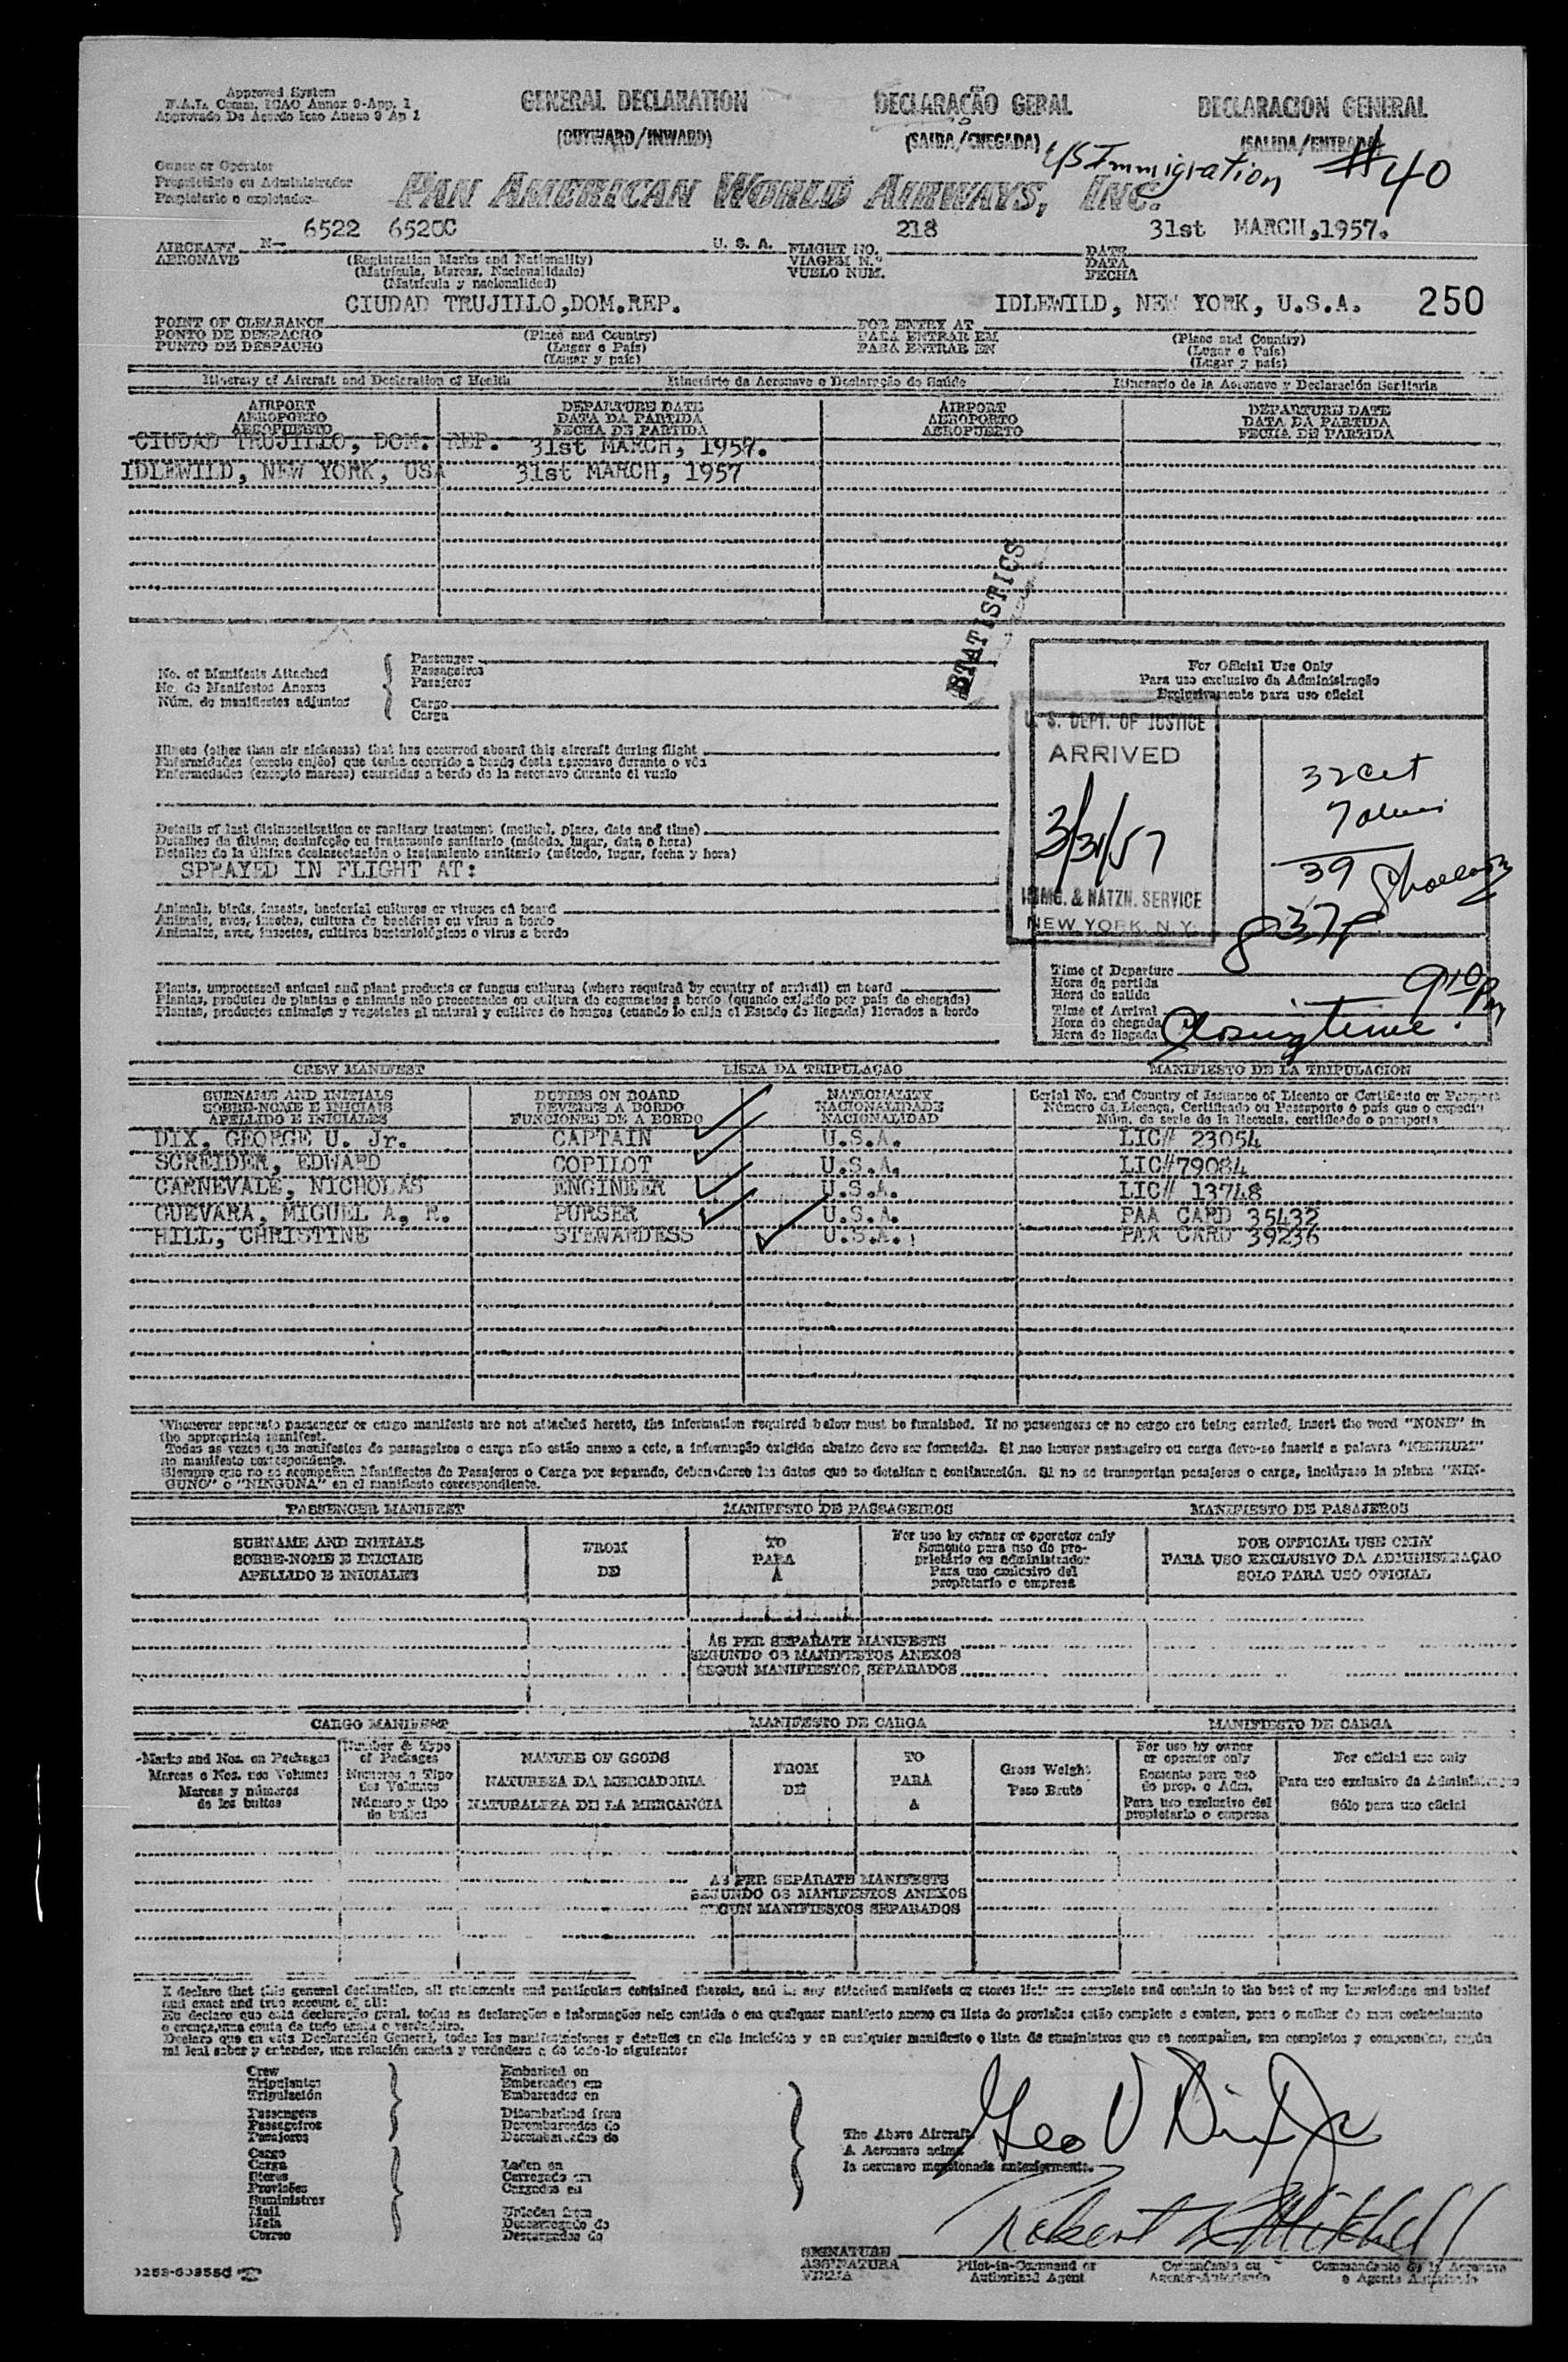 Approved System
F.A.L. Comm. ICAO Annex 9-App. 1
Approvado De Acordo Icao Anexo 9 Ap 1
GENERAL DECLARATION
(OUTWARD/INWARD)
DECLARAÇÃO GERAL
(SAIDA/CHEGADA)
DECLARACION GENERAL
(SALIDA/ENTRADA)
US Immigration #40
Owner or Operator
Proprietário ou Administrador
Propietario o explotador
PAN AMERICAN WORLD AIRWAYS, INC.
6522 6520C
218
31st MARCH,1957.
AIRCRAFT N-
AERONAVE
U. S. A.
FLIGHT NO.
VIAGEM N.º
VUELO NUM.
DATE
DATA
FECHA
(Registration Marks and Nationality)
(Matrícula, Marcas, Nacionalidade)
(Matrícula y nacionalidad)
CIUDAD TRUJILLO,DOM.REP.
IDLEWILD, NEW YORK, U.S.A.
250
POINT OF CLEARANCE
PONTO DE DESPACHO
PUNTO DE DESPACHO
(Place and Country)
(Lugar e País)
(Lugar y país)
FOR ENTRY AT
PARA ENTRAR EM
PARA ENTRAR EN
(Place and Country)
(Lugar e País)
(Lugar y país)
Itinerary of Aircraft and Declaration of Health
Itinerário da Aeronave e Declaração de Saúde
Itinerario de la Aeronave y Declaración Sanitaria
AIRPORT
AEROPORTO
AEROPUERTO
DEPARTURE DATE
DATA DA PARTIDA
FECHA DE PARTIDA
AIRPORT
AEROPORTO
AEROPUERTO
DEPARTURE DATE
DATA DA PARTIDA
FECHA DE PARTIDA
CIUDAD TRUJILLO, DOM. REP. 31st MARCH, 1957.
IDLEWILD, NEW YORK, USA 31st MARCH, 1957
STATISTICS
No. of Manifests Attached
No. de Manifestos Anexos
Núm. de manifiestos adjuntos
Passenger
Passageiros
Pasajeros
Cargo
Carga
For Official Use Only
Para uso exclusivo da Administração
Exclusivamente para uso oficial
U. S. DEPT. OF JUSTICE
ARRIVED
3/31/57
IMMG. & NATZN. SERVICE
NEW YORK, N.Y.
32 Cit
7 aliens
39
837P
Illness (other than air sickness) that has occurred aboard this aircraft during flight
Enfermidades (exceto enjôo) que tenha ocorrido a bordo desta aeronave durante o vôo
Enfermedades (excepto mareos) ocurridas a bordo de la aeronave durante el vuelo
Details of last disinsectisation or sanitary treatment (method, place, date and time)
Detalhes da última desinfeção ou tratamento sanitário (método, lugar, data e hora)
Detalles de la última desinsectación o tratamiento sanitario (método, lugar, fecha y hora)
SPRAYED IN FLIGHT AT:
Animals, birds, insects, bacterial cultures or viruses on board
Animais, aves, insetos, cultura de bactérias ou vírus a bordo
Animales, aves, insectos, cultivos bacteriológicos o virus a bordo
Plants, unprocessed animal and plant products or fungus cultures (where required by country of arrival) on board
Plantas, produtos de plantas e animais não processados ou cultura de cogumelos a bordo (quando exigido por país de chegada)
Plantas, productos animales y vegetales al natural y cultivos de hongos (cuando lo exija el Estado de llegada) llevados a bordo
Time of Departure
Hora da partida
Hora de salida
Time of Arrival
Hora de chegada
Hora de llegada
9:10 Pm
Closing time.
CREW MANIFEST
LISTA DA TRIPULAÇÃO
MANIFIESTO DE LA TRIPULACION
SURNAME AND INITIALS
SOBRE-NOME E INICIAIS
APELLIDO E INICIALES
DUTIES ON BOARD
DEVERES A BORDO
FUNCIONES DE A BORDO
NATIONALITY
NACIONALIDADE
NACIONALIDAD
Serial No. and Country of Issuance of License or Certificate or Passport
Número da Licença, Certificado ou Passaporte e país que o expediu
Núm. de serie de la licencia, certificado o pasaporte
DIX, GEORGE U. Jr. CAPTAIN U.S.A. LIC# 23054
SCREIDER, EDWARD COPILOT U.S.A. LIC#79084
CARNEVALE, NICHOLAS ENGINEER U.S.A. LIC# 13748
GUEVARA, MIGUEL A. R. PURSER U.S.A. PAA CARD 35432
HILL, CHRISTINE STEWARDESS U.S.A. PAA CARD 39236
Whenever separate passenger or cargo manifests are not attached hereto, the information required below must be furnished. If no passengers or no cargo are being carried, insert the word "NONE" in
the appropriate manifest.
Todas as vezes que manifestos de passageiros e carga não estão anexo a este, a informação exigida abaixo deve ser fornecida. Si nao houver passageiro ou carga deve-se inserir a palavra "NENHUM"
no manifesto correspondente.
Siempre que no se acompañen Manifiestos de Pasajeros o Carga por separado, deben darse los datos que se detallan a continuación. Si no se transportan pasajeros o carga, inclúyase la plabra "NIN-
GUNO" o "NINGUNA" en el manifiesto correspondiente.
PASSENGER MANIFEST
MANIFESTO DE PASSAGEIROS
MANIFIESTO DE PASAJEROS
SURNAME AND INITIALS
SOBRE-NOME E INICIAIS
APELLIDO E INICIALES
FROM
DE
TO
PARA
A
For use by owner or operator only
Somente para uso do pro-
prietário ou administrador
Para uso exclusivo del
propietario o empresa
FOR OFFICIAL USE ONLY
PARA USO EXCLUSIVO DA ADMINISTRAÇAO
SOLO PARA USO OFICIAL
AS PER SEPARATE MANIFESTS
SEGUNDO OS MANIFESTOS ANEXOS
SEGUN MANIFIESTOS SEPARADOS
CARGO MANIFEST
MANIFESTO DE CARGA
MANIFIESTO DE CARGA
Marks and Nos. on Packages
Marcas e Nos. nos Volumes
Marcas y números
de los bultos
Number & Type
of Packages
Numeros e Tipo
dos Volumes
Número y tipo
de bultos
NATURE OF GOODS
NATUREZA DA MERCADORIA
NATURALEZA DE LA MERCANCIA
FROM
DE
TO
PARA
A
Gross Weight
Peso Bruto
For use by owner
or operator only
Somente para uso
do prop. o Adm.
Para uso exclusivo del
propietario o empresa
For official use only
Para uso exclusivo da Administração
Sólo para uso oficial
AS PER SEPARATE MANIFESTS
SEGUNDO OS MANIFESTOS ANEXOS
SEGUN MANIFIESTOS SEPARADOS
I declare that this general declaration, all statements and particulars contained therein, and in any attached manifests or stores lists are complete and contain to the best of my knowledge and belief
and exact and true account of all:
Eu declaro que esta declaração geral, todas as declarações e informações nela contida e em qualquer manifesto anexo ou lista de provisões estão completo e contem, para o melhor do meu conhecimento
e crença, uma conta de tudo exata e verdadeira.
Declaro que en esta Declaración General, todas las manifestaciones y detalles en ella incluidos y en cualquier manifiesto o lista de suministros que se acompañen, son completos y comprenden, según
mi leal saber y entender, una relación exacta y verdadera e de todo lo siguiente:
Crew
Tripulantes
Tripulación
Passengers
Passageiros
Pasajeros
Cargo
Carga
Stores
Provisões
Suministros
Mail
Mala
Correo
Embarked on
Embarcados em
Embarcados en
Disembarked from
Desembarcados do
Desembarcados de
Laden on
Carregado em
Cargados en
Unladen from
Descarregado do
Descargados de
The Above Aircraft
A Aeronave acima
la aeronave mencionada anteriormente.
Geo V Dix Jr
Robert K Mitchell
SIGNATURE
ASSINATURA
FIRMA
Pilot-in-Command or
Authorized Agent
Comandante ou
Agente-Autorizado
Commandante de la Aeronave
o Agente Autorizado